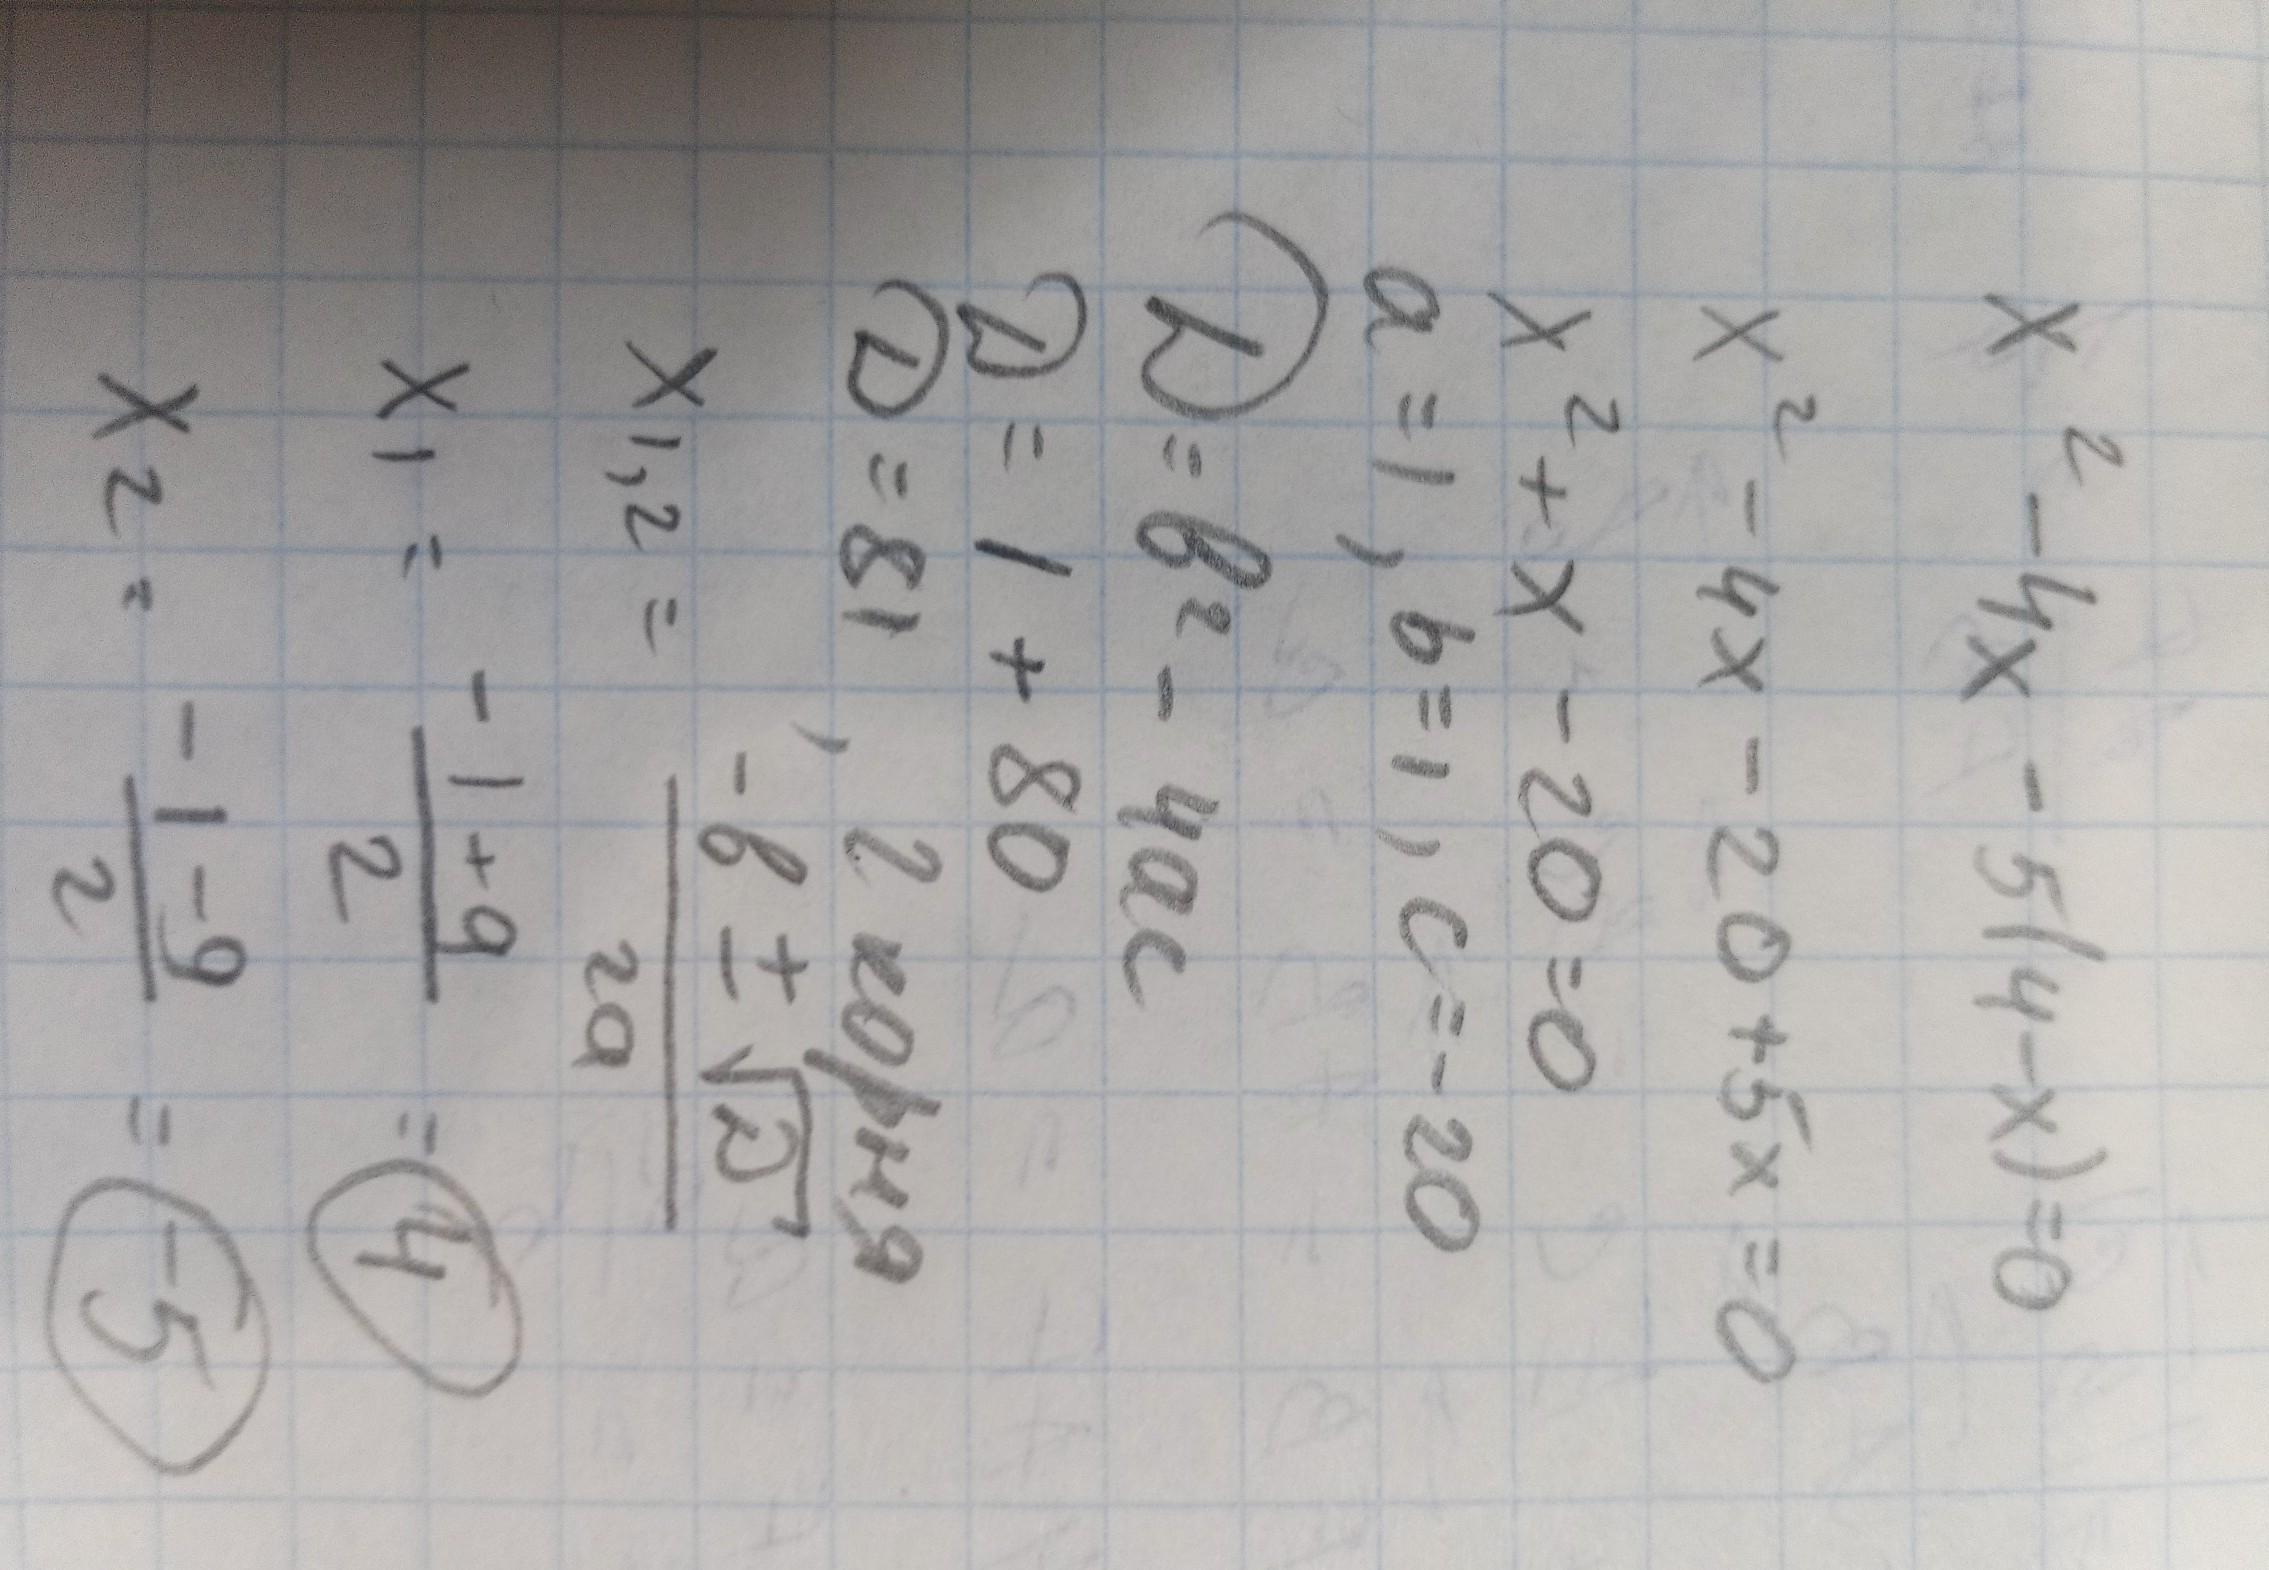 x² - 4x - 5(4-x) = 0
x² - 4x - 20 + 5x = 0
x² + x - 20 = 0
a = 1, b = 1, c = -20
D = b² - 4ac
D = 1 + 80
D = 81, 2 корня
x₁,₂ = (-b ± √D) / 2a
x₁ = (-1+9) / 2 = 4
x₂ = (-1-9) / 2 = -5